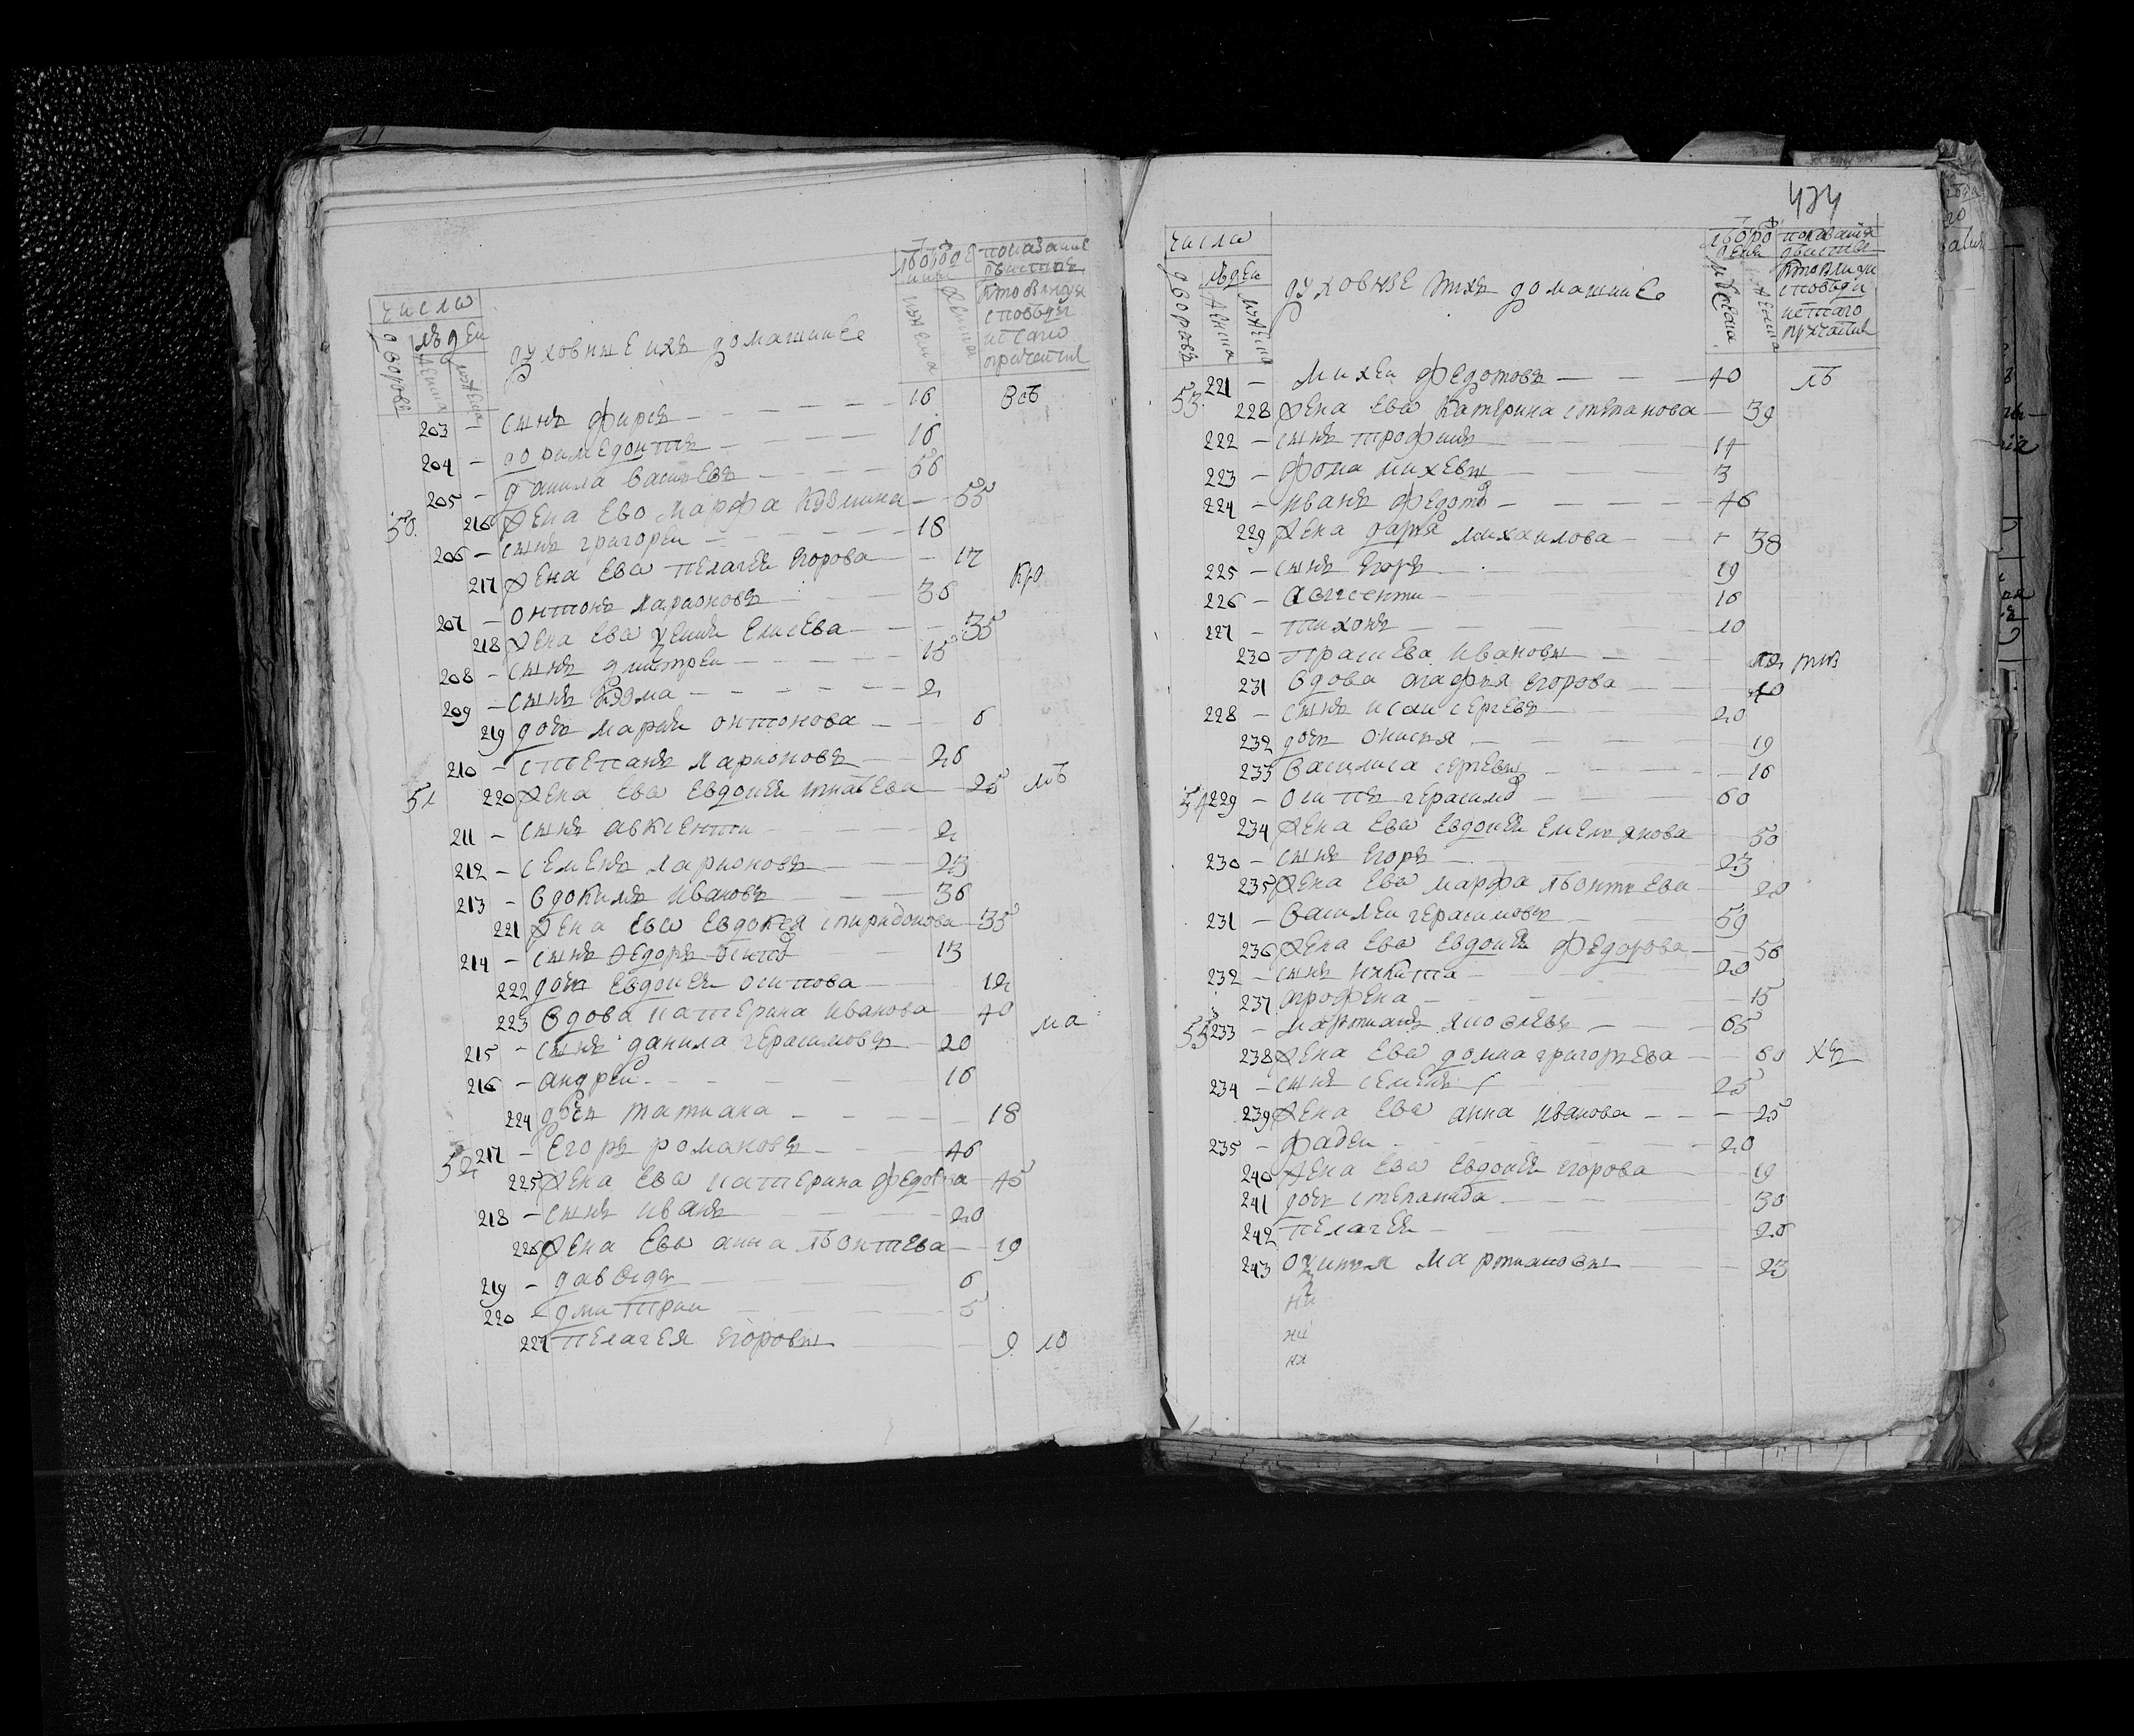 числа
людеи
дворовъ
женска
мужеска
духовныЕ ихъ домашниЕ
лѣтъ
мужеска
женска
показание
кто былъ у исповѣди и с:таго причастия
203 - сынъ фирсъ - 16 Всѣ
204 - доримЕдонтъ - 16
205 - данила васильЕвъ - 56
50. 216 жЕна Ево марфа кузмина - 55
206 - сынъ григореи - 18
217 жЕна Ево пЕлагЕя Егорова - 17
207 - онтонъ ларионовъ - 36 кро
218 жЕна Ево ЕлисЕва - 35
208 - сынъ дмитреи - 15
209 - сынъ кузма - 2
219 дочь мария онтонова - 6
210 - стЕпанъ ларионовъ - 26
51 220 жЕна Ево ЕвдокЕя игнатЕва - 25 лѣ
211 - сынъ авксЕнтии 2
212 - сЕмЕнъ ларионовъ - 23
213 - Вдокимъ Ивановъ - 36
221 жЕна Ево Евдокея спиридонова - 35
214 - сынъ фЕдоръ осипов 13
222 дочь ЕвдокЕя осипова - 12
223 Вдова катЕрина Иванова 40
215 - сынъ данила гЕрасимовъ - 20 ма
216 - андрей - 16
224 дочь татиана - 18
52 217 - Егоръ романовъ - 46
225 жЕна Ево катЕрина фЕдотова 45
218 - сынъ иванъ 20
226 жЕна Ево анна лЕонтЕва - 19
219 - давыдъ 6
220 - дмитрии 5
227 пЕлагЕя Егоровы 9 10
434
числа
людеи
дворовъ
женска
мужеска
духовныЕ ихъ домашниЕ
лѣтъ
мужеска
женска
показания
кто былъ у
исповѣди
и с:таго
причастия
53. 221 - Михеи фЕдотовъ - 40 лѣ
228 жЕна Ево КатЕрина стЕпанова - 39
222 - сынъ трофимъ 14
223 - фома михЕвы - 3
224 - иванъ фЕдотов - 46
229 жЕна дарья михаилова - 38
225 - сынъ Егоръ - 19
226 - Авгсенти - 16
227 - тихонъ - 10
230 прасковЕя Ивановы - 12
231 Вдова агафья Егорова - 40
228 - сынъ исаи сЕргЕвъ - 20
232 дочь Онисья - 19
233 Василиса сЕргЕвы - 16
54 229 - Осипъ гЕрасимов - 60
234 жЕна Ево ЕвдокЕя ЕмЕльянова 50
230 - сынъ Егоръ - 23
235 жЕна Ево марфа лЕонтьЕва - 20
231 - ВасилЕи гЕрасимовъ - 59
236 жЕна Ево ЕвдокЕя фЕдорова - 56
232 - сынъ никита - 20
237 агрофЕна - 15
55 233 - мартианъ яковлЕвъ - 65
238 жЕна Ево домна григорьЕва - 60
234 - сынъ сЕмЕнъ 25
239 жЕна Ево анна Иванова - 25
235 - фадеи - 20
240 жЕна Ево ЕвдокЕя Егорова 19
241 дочь стЕпанида - 30
242 пЕлагЕя - 26
243 Мартиановы - 23